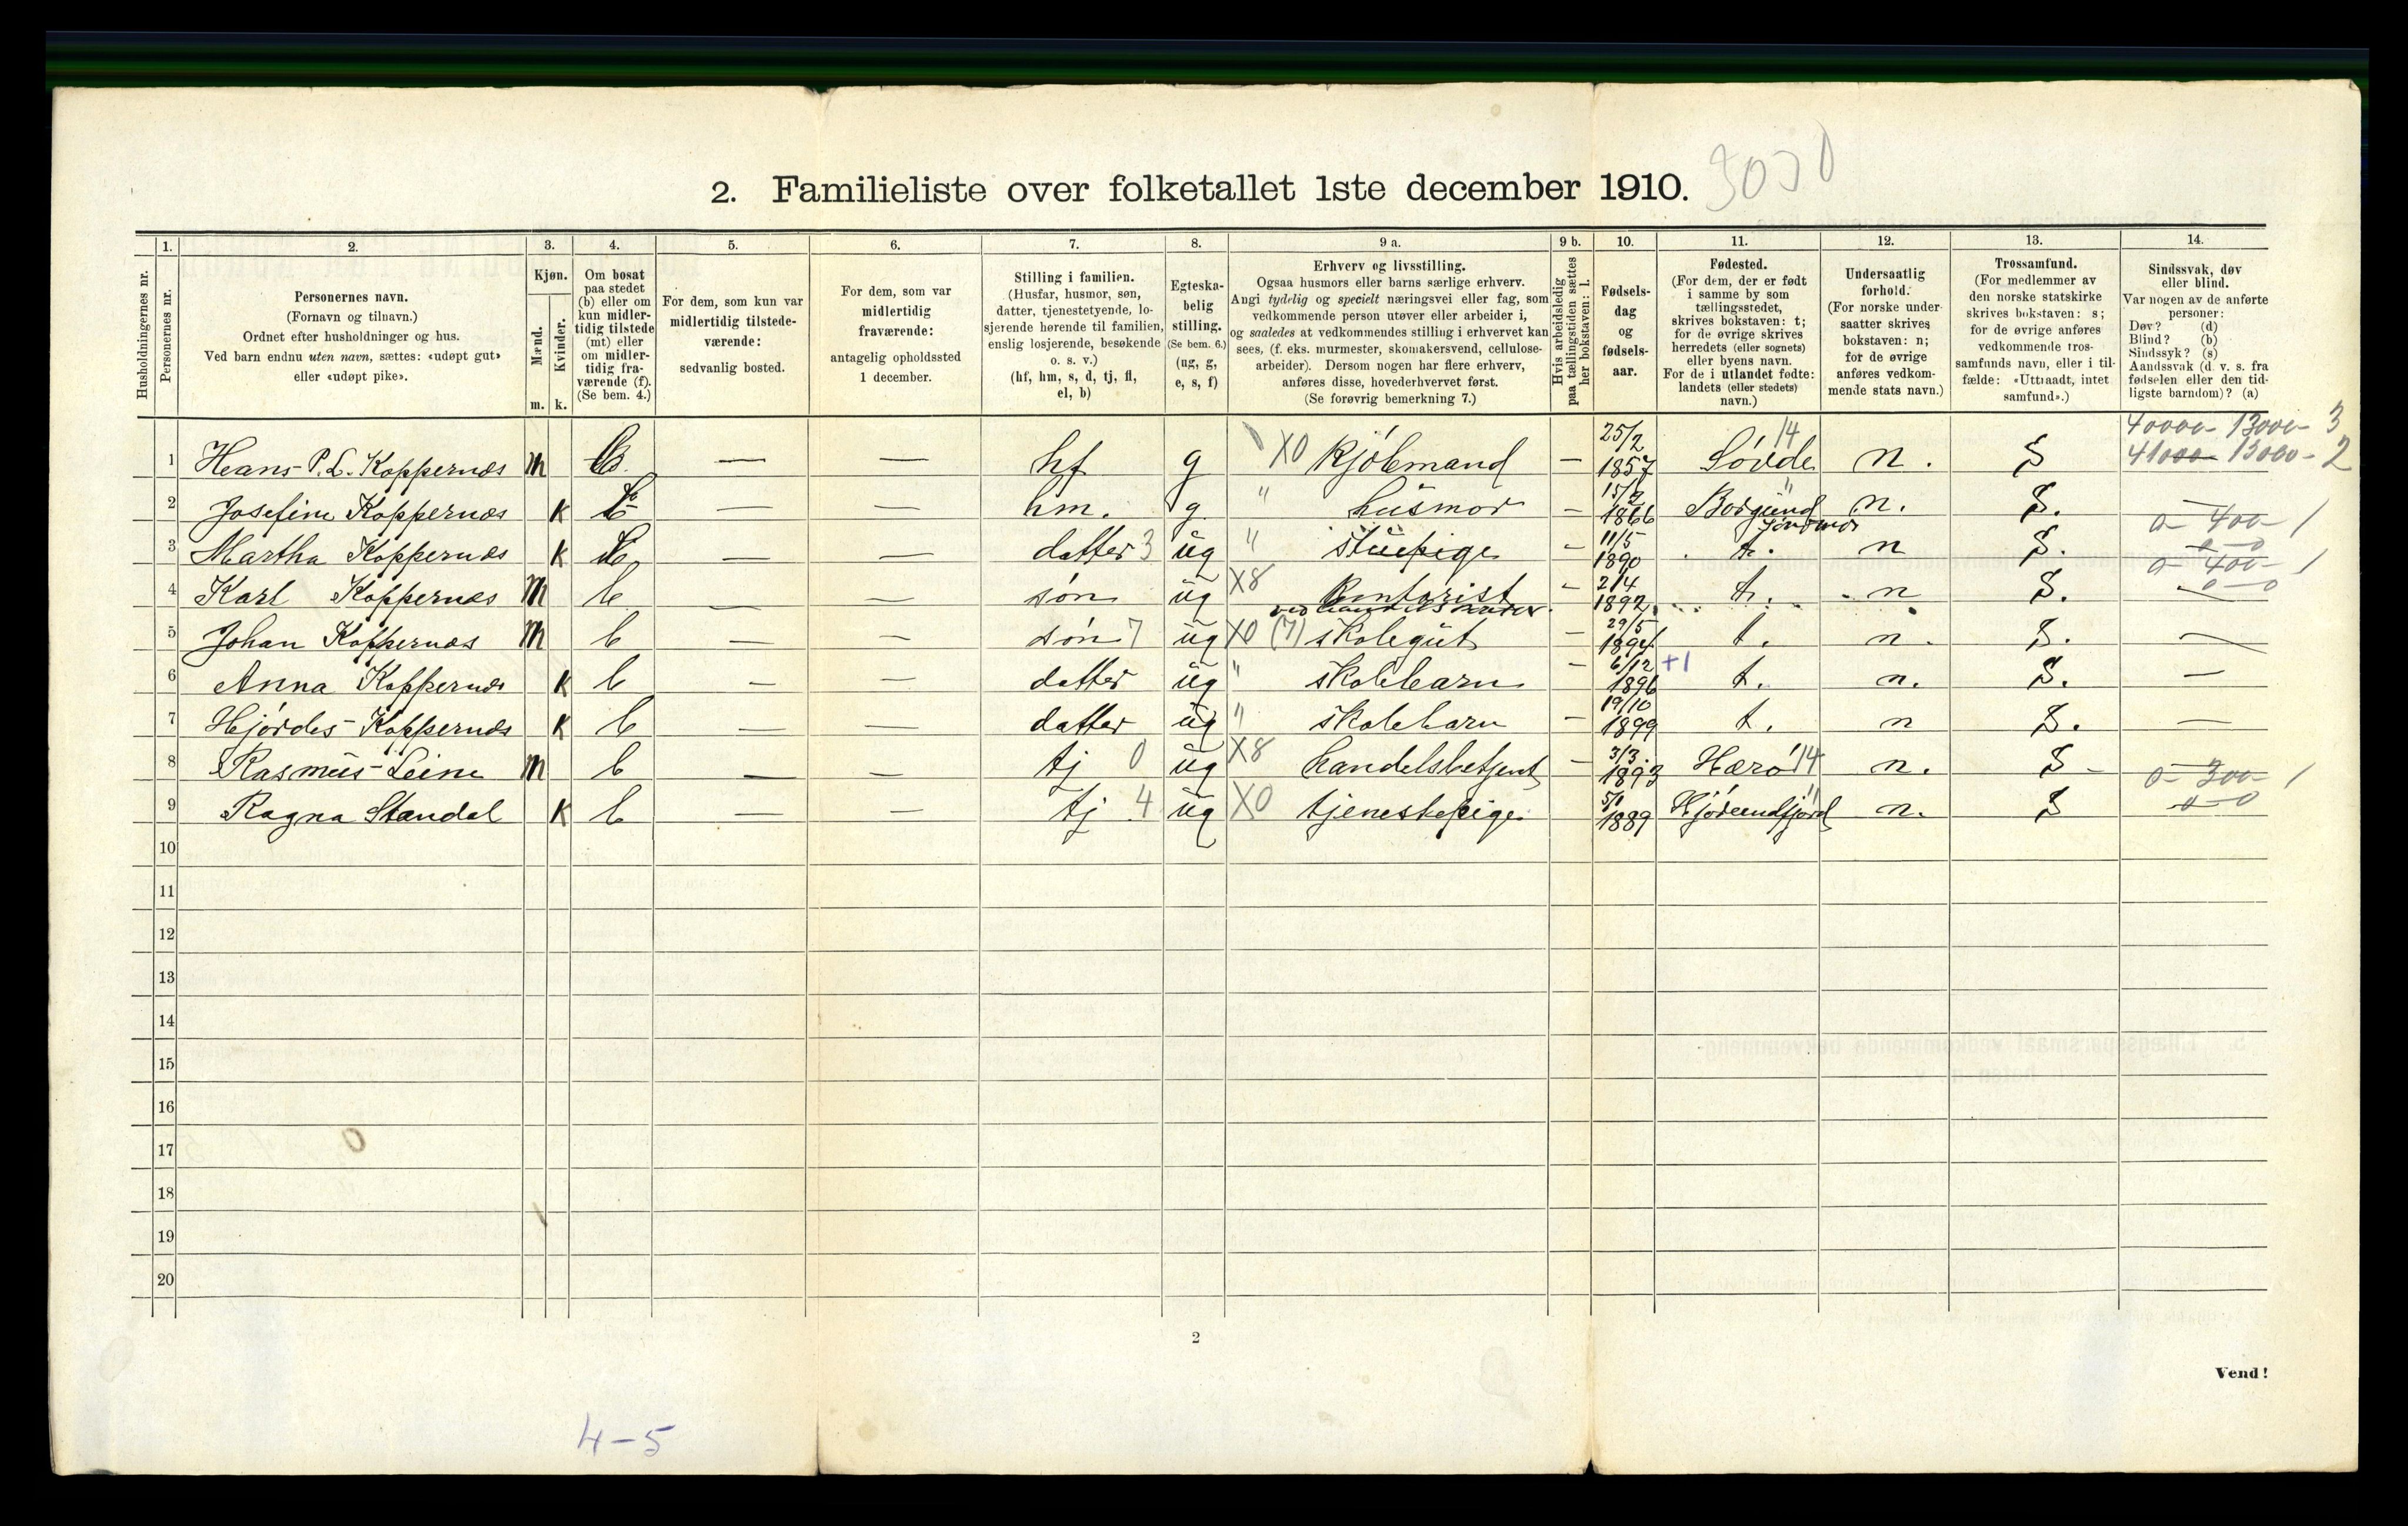 2. Familieliste over folketallet 1ste december 1910.
Husholdningernes nr.
1. Personernes nr.
2. Personernes navn.
(Fornavn og tilnavn.)
Ordnet efter husholdninger og hus.
Ved barn endnu uten navn, sættes: «udøpt gut»
eller «udøpt pike».
3. Kjøn.
Mænd. m.
Kvinder. k.
4. Om bosat
paa stedet
(b) eller om
kun midler-
tidig tilstede
(mt) eller
om midler-
tidig fra-
værende (f).
(Se bem. 4.)
5. For dem, som kun var
midlertidig tilstede-
værende:
sedvanlig bosted.
6. For dem, som var
midlertidig
fraværende:
antagelig opholdssted
1 december.
7. Stilling i familien.
(Husfar, husmor, søn,
datter, tjenestetyende, lo-
sjerende hørende til familien,
enslig losjerende, besøkende
o. s. v.)
(hf, hm, s, d, tj, fl,
el, b)
8. Egteska-
belig
stilling.
(Se bem. 6.)
(ug, g,
e, s, f)
9 a. Erhverv og livsstilling.
Ogsaa husmors eller barns særlige erhverv.
Angi tydelig og specielt næringsvei eller fag, som
vedkommende person utøver eller arbeider i,
og saaledes at vedkommendes stilling i erhvervet kan
sees, (f. eks. murmester, skomakersvend, cellulose-
arbeider). Dersom nogen har flere erhverv,
anføres disse, hovederhvervet først.
(Se forøvrig bemerkning 7.)
9 b. Hvis arbeidsledig
paa tællingstiden sættes
her bokstaven: l.
10. Fødsels-
dag
og
fødsels-
aar.
11. Fødested.
(For dem, der er født
i samme by som
tællingsstedet,
skrives bokstaven: t;
for de øvrige skrives
herredets (eller sognets)
eller byens navn.
For de i utlandet fødte:
landets (eller stedets)
navn.)
12. Undersaatlig
forhold.
(For norske under-
saatter skrives
bokstaven: n;
for de øvrige
anføres vedkom-
mende stats navn.)
13. Trossamfund.
(For medlemmer av
den norske statskirke
skrives bokstaven: s;
for de øvrige anføres
vedkommende tros-
samfunds navn, eller i til-
fælde: «Uttraadt, intet
samfund».)
14. Sindssvak, døv
eller blind.
Var nogen av de anførte
personer:
Døv? (d)
Blind? (b)
Sindssyk? (s)
Aandssvak (d. v. s. fra
fødselen eller den tid-
ligste barndom)? (a)
1 Hans P. L. Koppernæs m b. — — hf g X0 Kjöbmand — 25/2 1857 Sövde 14 n. S
2 Josefine Koppernæs k b — — hm. g " husmor — 1866 Borgund Söndmør n. S. —
3 Martha Koppernæs k b — — datter 3 ug " stuepige - 11/5 1890 t. n S. 0- 400- 1
4 Karl Koppernæs m b — — søn ug X8 Kontorist - 2/4 1892 t. n S. 0- 400- 1
5 Johan Koppernæs m b — — søn 7 ug X0 (7) skolegut — 29/5 1894 t. n. S. —
6 Anna Koppernæs k b — — datter ug " skolebarn - 6/12 1896 +1 t. n. S. —
7 Hjördes Koppernæs k b — — datter ug " skolebarn — 19/10 1899 t. n S. —
8 Rasmus Leine m b — — tj 0 ug X8 handelsbetjent - 3/3 1893 Herö 14 n. S - 0- 300- 1
9 Ragna Standal k b — — tj 4 ug X0 tjenestepige 5/1 1889 Hjörundfjord n. S
10
11
12
13
14
15
16
17
18
19
20
2
Vend!
4-5